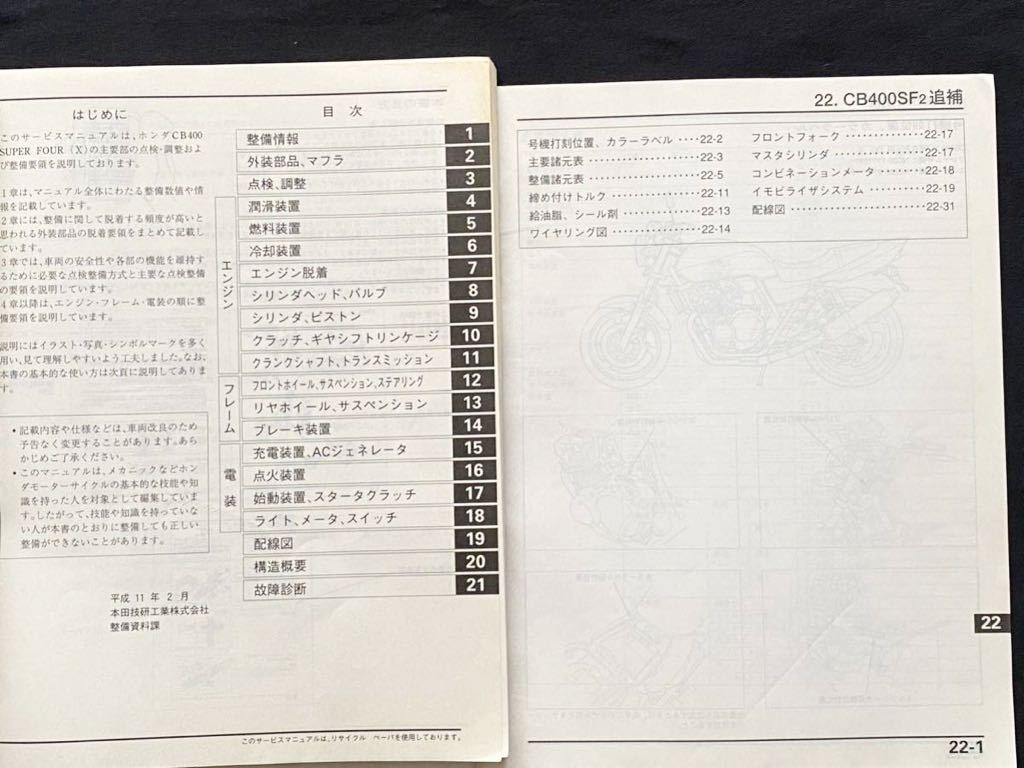 はじめに
このサービスマニュアルは、ホンダCB400
SUPER FOUR (X)の主要部の点検・調整およ
び整備要領を説明しております。
1章は、マニュアル全体にわたる整備数値や情
報を記載しています。
2章には、整備に関して脱着する頻度が高いと
思われる外装部品の脱着要領をまとめて記載し
ています。
3章では、車両の安全性や各部の機能を維持す
るために必要な点検整備方式と主要な点検整備
の要領を説明しています。
4章以降は、エンジン・フレーム・電装の順に整
備要領を説明しています。
説明にはイラスト・写真・シンボルマークを多く
用い、見て理解しやすいよう工夫しました。なお、
本書の基本的な使い方は次頁に説明してありま
す。
•記載内容や仕様などは、車両改良のため
予告なく変更することがあります。あら
かじめご了承ください。
•このマニュアルは、メカニックなどホン
ダモーターサイクルの基本的な技能や知
識を持った人を対象として編集していま
す。したがって、技能や知識を持っていな
い人が本書のとおりに整備しても正しい
整備ができないことがあります。
平成 11 年 2 月
本田技研工業株式会社
整備資料課
目 次
整備情報 1
外装部品、マフラ 2
点検、調整 3
エンジン
潤滑装置 4
燃料装置 5
冷却装置 6
エンジン脱着 7
シリンダヘッド、バルブ 8
シリンダ、ピストン 9
クラッチ、ギヤシフトリンケージ 10
クランクシャフト、トランスミッション 11
フレーム
フロントホイール、サスペンション、ステアリング 12
リヤホイール、サスペンション 13
ブレーキ装置 14
電装
充電装置、ACジェネレータ 15
点火装置 16
始動装置、スタータクラッチ 17
ライト、メータ、スイッチ 18
配線図 19
構造概要 20
故障診断 21
このサービスマニュアルは、リサイクル ペーパを使用しております。
22. CB400SF2追補
号機打刻位置、カラーラベル ････22-2
主要諸元表 ･･････････････22-3
整備諸元表 ･･････････････22-5
締め付けトルク ･･･････････22-11
給油脂、シール剤 ･････････22-13
ワイヤリング図 ･･･････････22-14
フロントフォーク ･･････････22-17
マスタシリンダ ･･･････････22-17
コンビネーションメータ ･････22-18
イモビライザシステム ･･････22-19
配線図 ･････････････････22-31
22
22-1